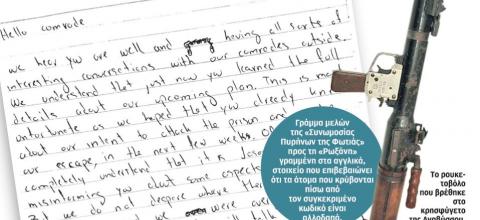 Hello comrode
we hear you are well and having all sorts of
interesting conversations with our comrades outside.
We understand that just now you learned the full
details about our upcoming plan. This is most
unfortunate as we hoped that you already knew
about our intent to attack the prison and
our escape, in the next few weeks.
completely understand that it is
misinforming you about some aspects
we do not despere where the
Γράμμα μελών
της «Συνωμοσίας
Πυρήνων της Φωτιάς»
προς τη «Ρωξάνη»
γραμμένη στα αγγλικά,
στοιχείο που επιβεβαιώνει
ότι τα άτομα που κρύβονται
πίσω από
τον συγκεκριμένο
κωδικό είναι
αλλοδαπά.
Το ρουκε-
τοβόλο
που βρέθηκε
στο
κρησφύγετο
της Αναβύσσου